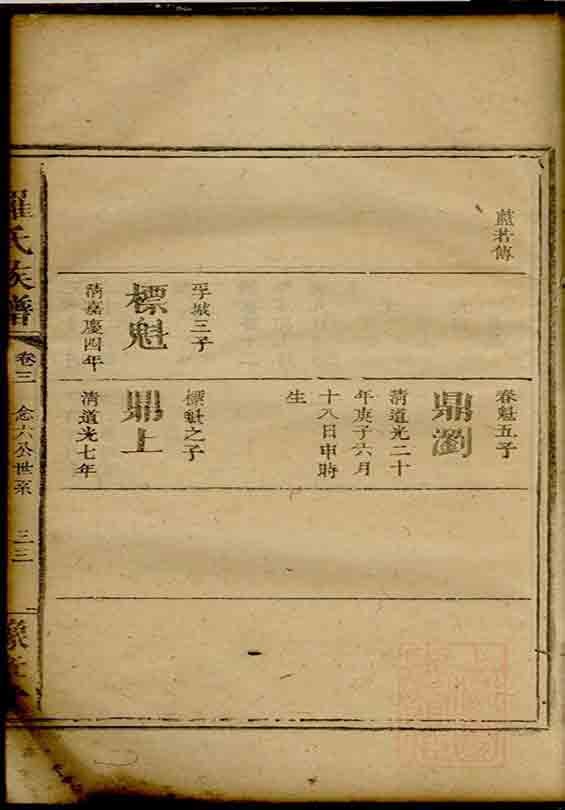 藍若傳
春魁五子
鼎瀏
清道光二十
年庚子六月
十八日申時
生
孚城三子
標魁
清嘉慶四年
標魁之子
鼎上
清道光七年
羅氏族譜
卷三
念六公世系
三三
豫章